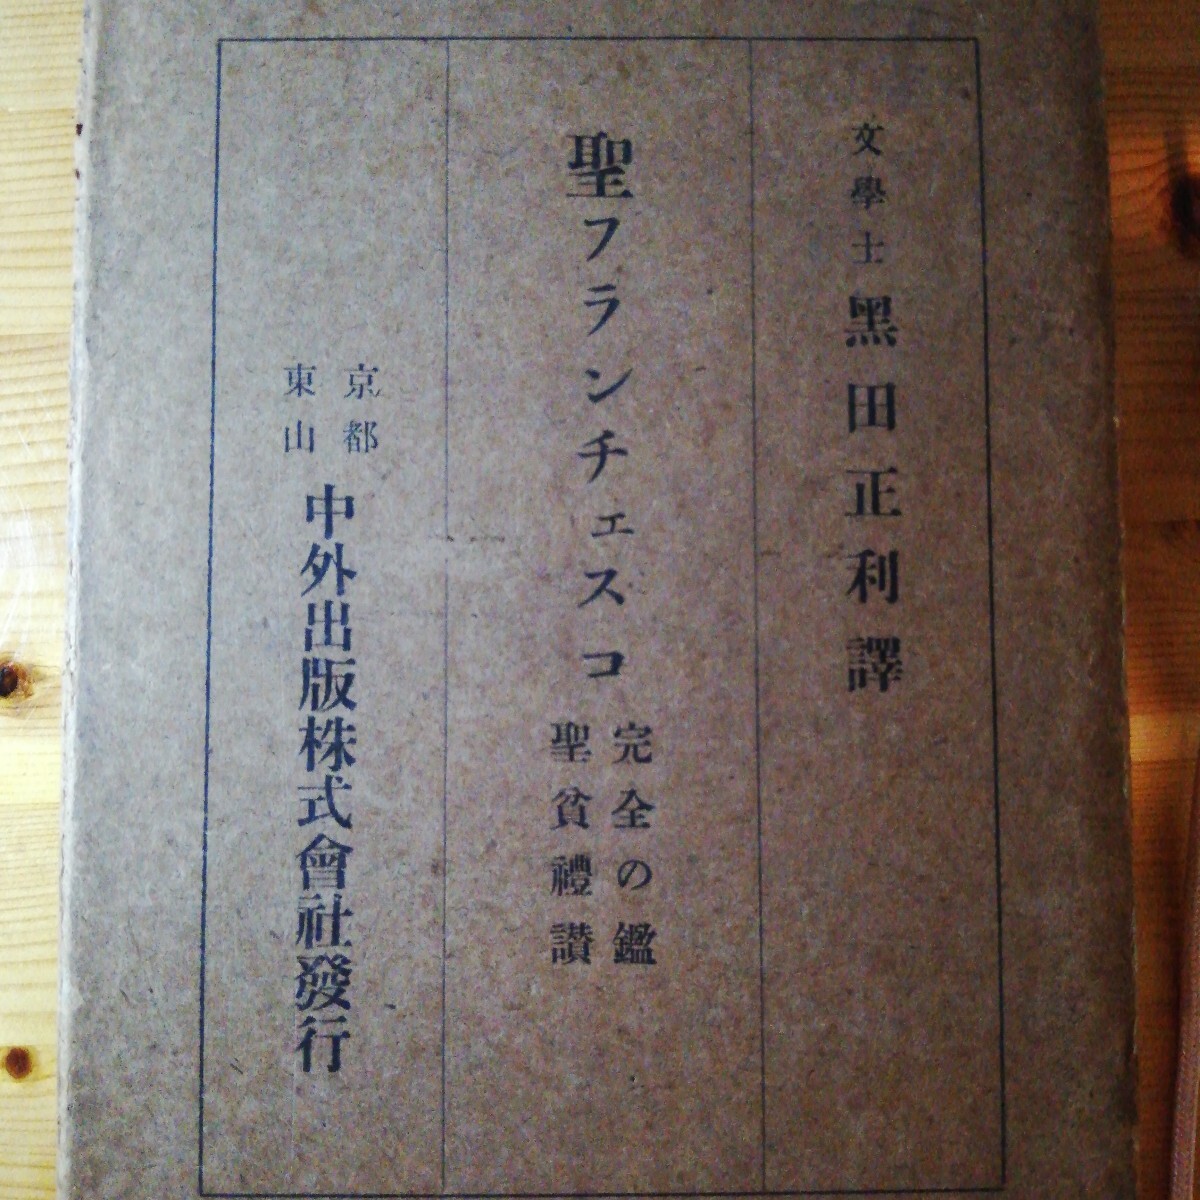 文學士 黑田正利譯
聖フランチェスコ
完全の鑑
聖貧禮讃
京都
東山
中外出版株式會社發行